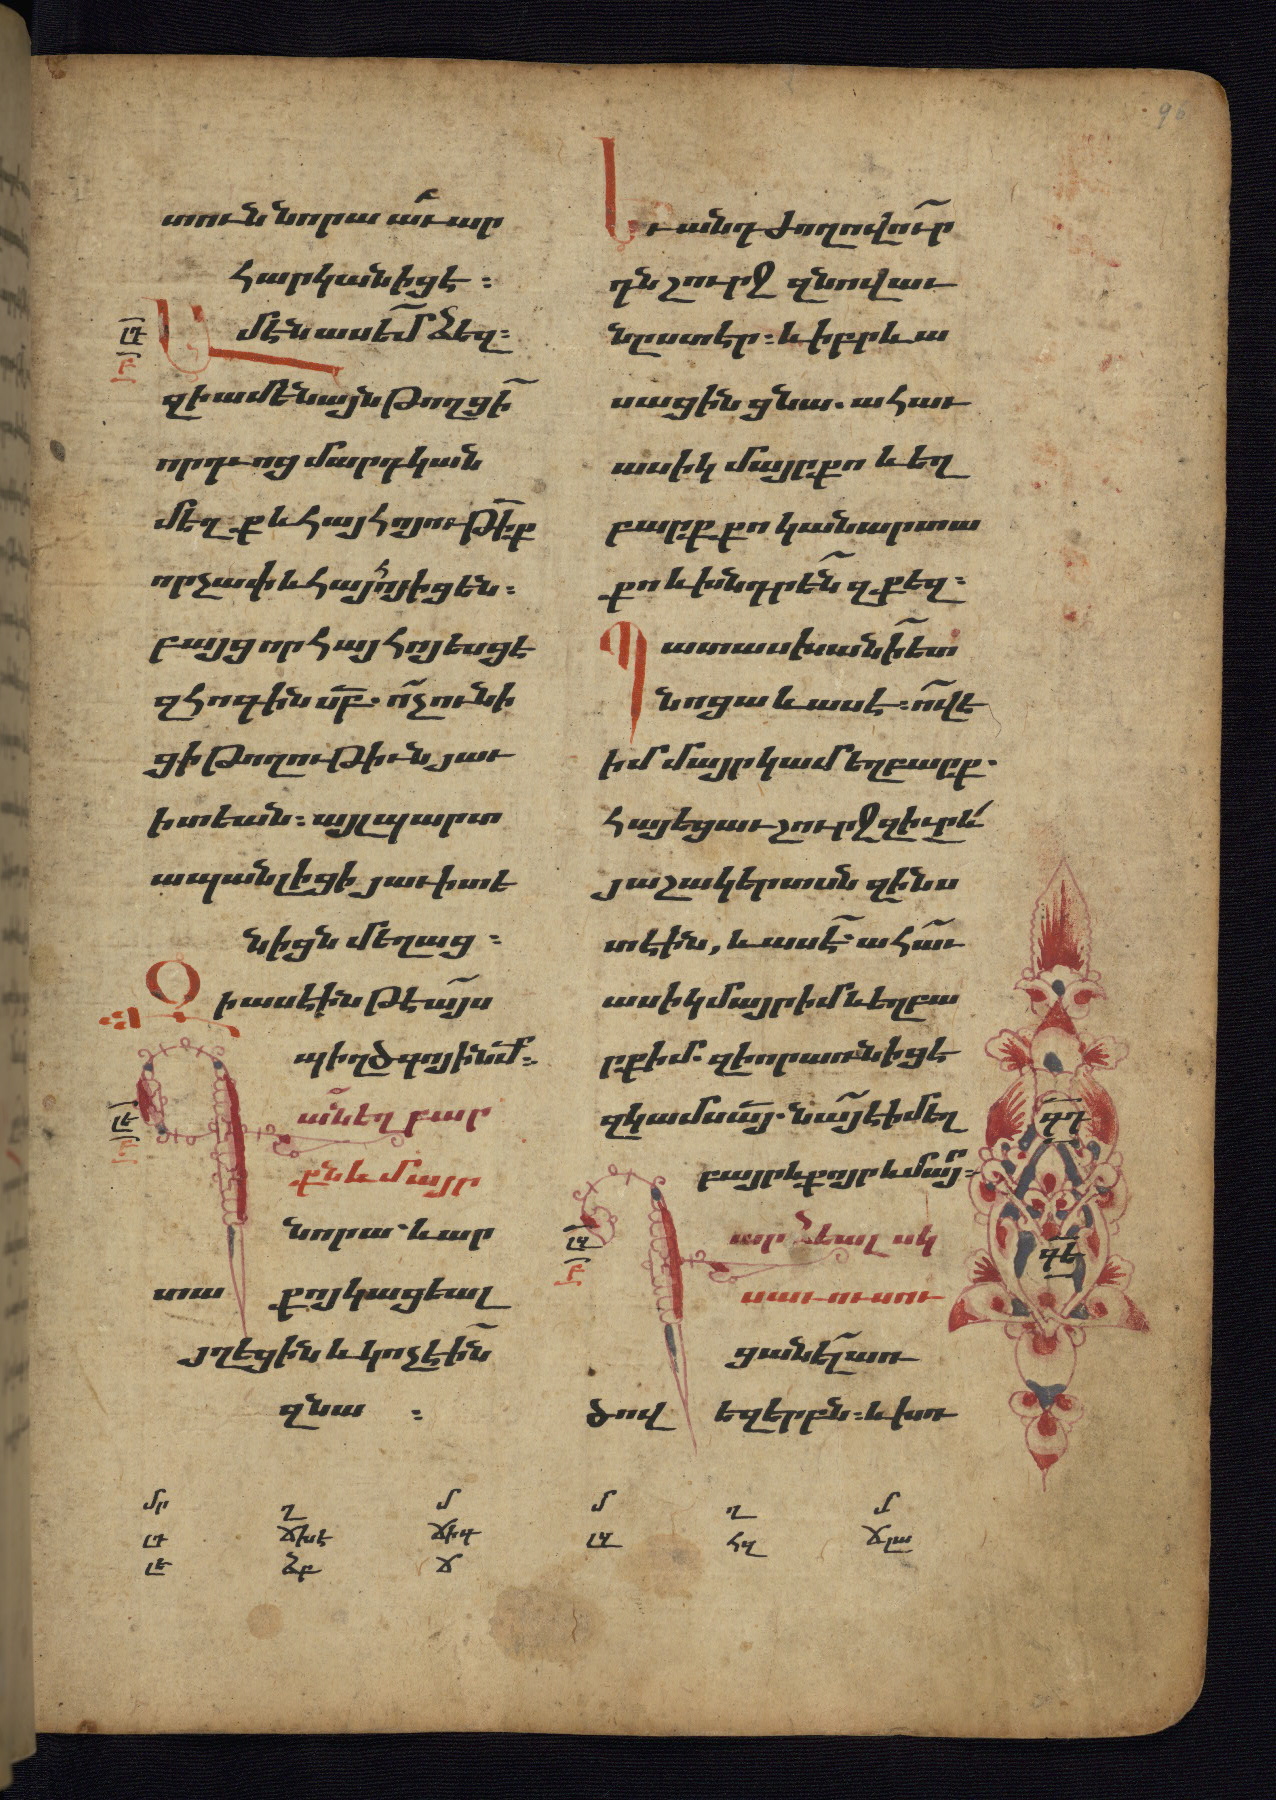 96
տուն նորա ա՟ւար
հարկանիցէ ։
Ամէն ասեմ՟ ձեզ։
լդ
բ
զի ամենայն թողցի՟
որդւոց մարդկան
մեղք և հայհոյութի՟ք
որչափ և հայհոյիցեն։
բայց որ հայհոյեսցէ
զհոգին սբ՟. ո՟չ ունի
ցի թողութիւն յաւ
իտեան։ այլ պարտ
ապան լիցի յաւիտե
նիցն մեղաց ։
Զի ասէին թէ ա՟յս
պիղծ գոյ ինմ՟։
լե
բ
Գան եղբար
քն և մայր
նորա՝ և ար
տաքոյ կացեալ
յղեցին և կոչէին՟
զնա ։
Եւ անդ ժողովու՟ր
դն շուրջ զնովաւ
նըստէր։ և իբրև ա
սացին ցնա. ահաւ
ասիկ մայր քո և եղ
բարք քո կան արտա
քո և խնդրեն՟ զքեզ։
Պատասխանի՟ ետ
նոցա և ասէ։ ո՟վ է
իմ մայր կամ եղբարք.
հայեցաւ շուրջ զիւրև
յաշակերտսն զինս
տէին, և ասէ՟. ահա՟ւ
ասիկ մայր իմ և եղբա
րք իմ. զի որ առնիցէ
զկամս ա՟յ. նա՟ է իմ եղ
բայր և քոյր և մա՟յ։
գդ
գե
լզ
բ
Դարձեալ սկ
սաւ ուսու
ցանել՟ առ
ծովեզերբն։ և խռ
մր ղ մ
լդ ճխէ ճիդ
լե ձբ ճ
մ ղ մ
լզ հզ ճլա